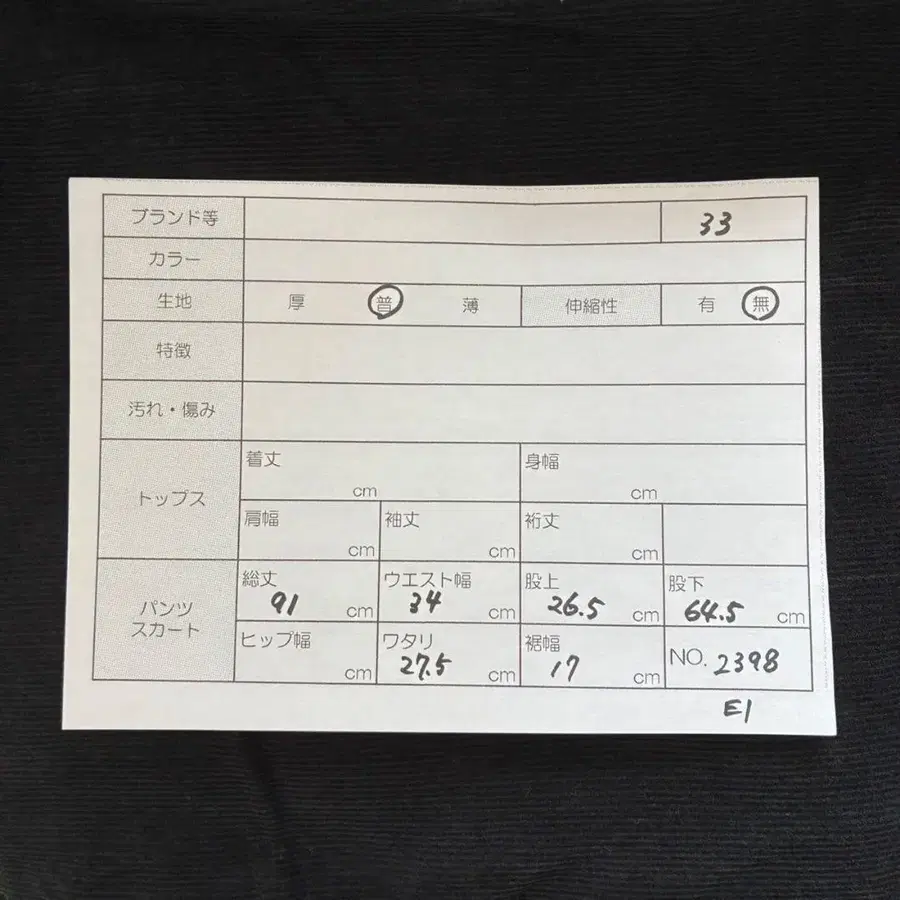 ブランド等 33
カラー
生地 厚 普 薄 伸縮性 有 無
特徴
汚れ・傷み
トップス
着丈 cm 身幅 cm
肩幅 cm 袖丈 cm 裄丈 cm
パンツ
スカート
総丈 91 cm ウエスト幅 34 cm 股上 26.5 cm 股下 64.5 cm
ヒップ幅 cm ワタリ 27.5 cm 裾幅 17 cm NO. 2398
E1